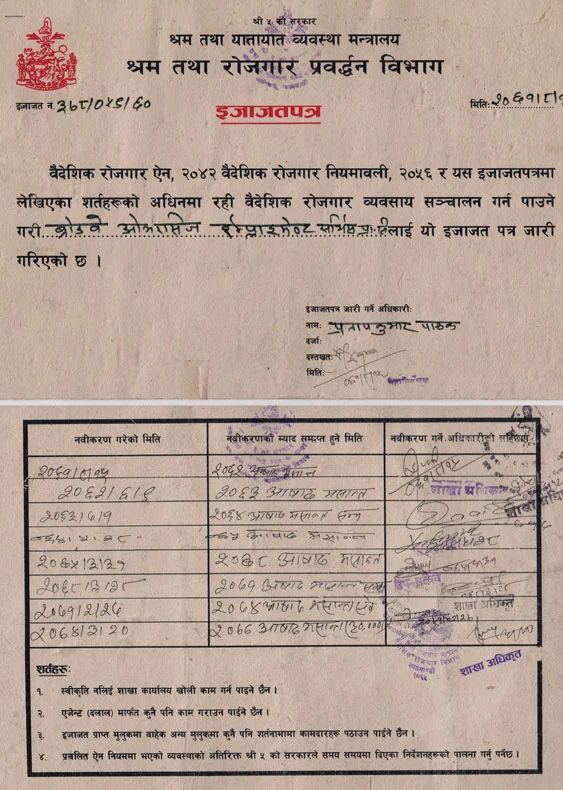 श्री ५ को सरकार
श्रम तथा यातायात व्यवस्था मन्त्रालय
श्रम तथा रोजगार प्रवर्द्धन विभाग
इजाजत नं. ३६८/०५९/६०
मिति: २०६१/८/
इजाजतपत्र
वैदेशिक रोजगार ऐन, २०४२ वैदेशिक रोजगार नियमावली, २०५६ र यस इजाजतपत्रमा
लेखिएका शर्तहरूको अधिनमा रही वैदेशिक रोजगार व्यवसाय सञ्चालन गर्न पाउने
गरी ब्रोडवे ओभरसिज इम्प्लाइमेन्ट सर्भिस प्रा.लि लाई यो इजाजत पत्र जारी
गरिएको छ ।
इजाजतपत्र जारी गर्ने अधिकारी:
नाम: प्रतापकुमार पाठक
दर्जा:
दस्तखत:
मिति:
नवीकरण गरेको मिति नवीकरणको म्याद समाप्त हुने मिति नवीकरण गर्ने अधिकारीको
२०६१/८/१५ २०६२ अषाढ मसान्त
२०६२/६/९ २०६३ आषाढ मसान्त
शाखा अधिकृत
२०६३/७/१ २०६४ आषाढ मसान्त सम्म
आषाढ मसान्त
२०६५/३/३१ २०६८ आषाढ मसान्त
२०६८/३/२८ २०७१ आषाढ मसान्त सम्म
२०७१/२/२६ २०७४ आषाढ मसान्त
शाखा अधिकृत
२०७४/३/२० २०७७ आषाढ मसान्त
शाखा अधिकृत
शर्तहरू:
१. स्वीकृति नलिई शाखा कार्यालय खोली काम गर्न पाइने छैन ।
२. एजेन्ट (दलाल) मार्फत कुनै पनि काम गराउन पाईने छैन ।
३. इजाजत प्राप्त मुलुकमा बाहेक अन्य मुलुकमा कुनै पनि शर्तनामामा कामदारहरू पठाउन पाईने छैन ।
४. प्रचलित ऐन नियममा भएको व्यवस्थाको अतिरिक्त श्री ५ को सरकारले समय समयमा दिएका निर्देशनहरूको पालना गर्नु पर्नेछ ।